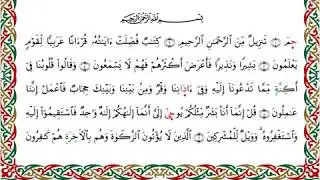 بِسْمِ ٱللَّهِ ٱلرَّحْمَٰنِ ٱلرَّحِيمِ
حمٓ ۝١ تَنزِيلٌ مِّنَ ٱلرَّحْمَٰنِ ٱلرَّحِيمِ ۝٢ كِتَٰبٌ فُصِّلَتْ ءَايَٰتُهُۥ قُرْءَانًا عَرَبِيًّا لِّقَوْمٍ
يَعْلَمُونَ ۝٣ بَشِيرًا وَنَذِيرًا فَأَعْرَضَ أَكْثَرُهُمْ فَهُمْ لَا يَسْمَعُونَ ۝٤ وَقَالُوا۟ قُلُوبُنَا فِىٓ
أَكِنَّةٍ مِّمَّا تَدْعُونَآ إِلَيْهِ وَفِىٓ ءَاذَانِنَا وَقْرٌ وَمِنۢ بَيْنِنَا وَبَيْنِكَ حِجَابٌ فَٱعْمَلْ إِنَّنَا
عَٰمِلُونَ ۝٥ قُلْ إِنَّمَآ أَنَا۠ بَشَرٌ مِّثْلُكُمْ يُوحَىٰٓ إِلَىَّ أَنَّمَآ إِلَٰهُكُمْ إِلَٰهٌ وَٰحِدٌ فَٱسْتَقِيمُوٓا۟ إِلَيْهِ
وَٱسْتَغْفِرُوهُ ۗ وَوَيْلٌ لِّلْمُشْرِكِينَ ۝٦ ٱلَّذِينَ لَا يُؤْتُونَ ٱلزَّكَوٰةَ وَهُم بِٱلْءَاخِرَةِ هُمْ كَٰفِرُونَ ۝٧